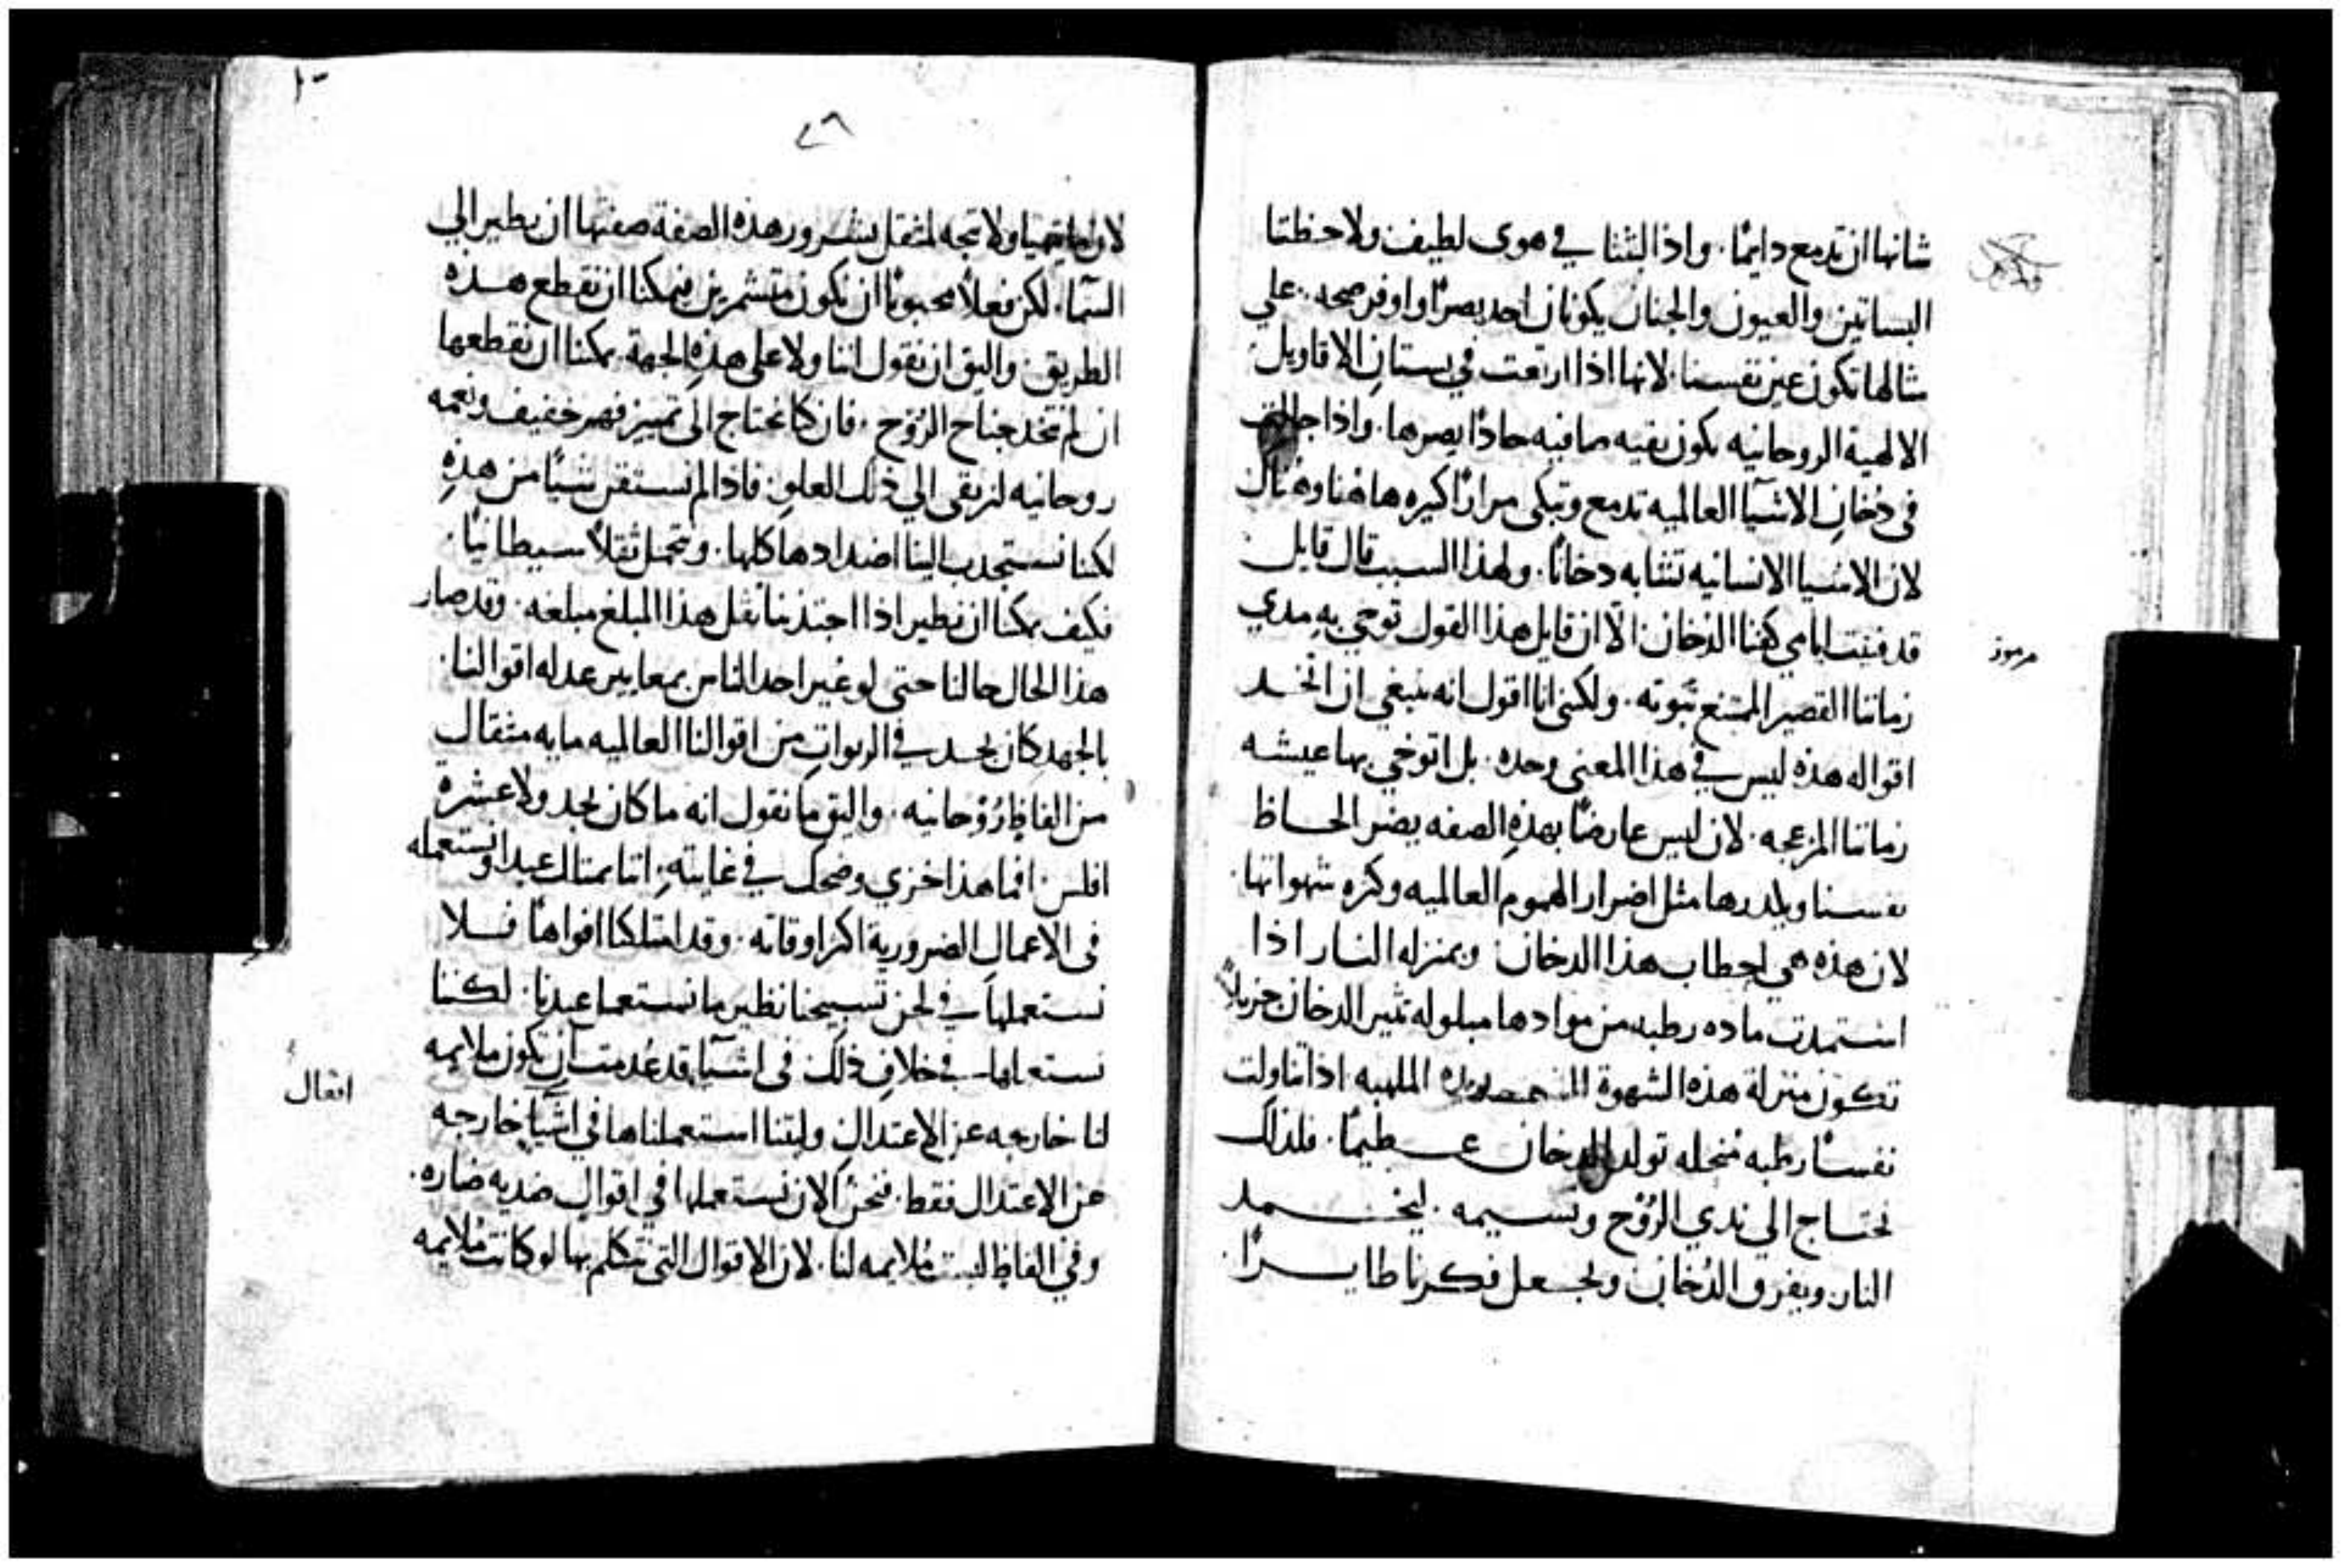 شانها ان تدمع دايمًا. واذا لبثتا في هوى لطيف ولاحظتا
البساتين والعيون والجنان يكونان احد بصرًا واوفر صحه. علي
مثالها تكون عين نفسنا. لانها اذا ارتعت في بستان الاقاويل
الالهية الروحانيه تكون نقيه صافيه حادًا بصرها. واذا جالت
في دخان الاشيآ العالميه تدمع وتبكي مرارًا كثيره هاهنا وهناك
لان الاشيا الانسانيه تشابه دخانًا. ولهذا السبب قال قايل
قد فنيت ايامي كفنا الدخان. الّا ان قايل هذا القول توخي به مدي
مرموز
زماننا القصير الممتنع ثبوته. ولكني انا اقول انه ينبغي ان اتخد
اقواله هذه ليس في هذا المعني وحده. بل اتوخي بها عيشه
زماننا المزعجه. لان ليس عارضًا بهذه الصفه يضر الحاظ
نفسنا ويكدرها مثل اضرار الهموم العالميه وكثره شهواتها.
لان هذه هي احطاب هذا الدخان وبمنزله النار اذا
استمدت ماده رطبه من موادها مبلوله تثير الدخان جزيلاً
تكون منزلة هذه الشهوة الملهبه اذا تناولت
نفسًا رطبه منحله تولد الدخان عظيمًا. فلذلك
نحتاج الي ندي الروح ونسيمه. ليخمد
النار ويفرق الدخان ويجعل فكرنا طايرًا.
٤٦
لان ولا تتجه لمثقل بشرور هذه الصفة صفتها ان يطير الي
السمآ. لكن فعلاً محبوبًا ان نكون متشمرين فيمكنا ان نقطع هذه
الطريق. واليق ان نقول اننا ولا علي هذه الجهة يمكنا ان نقطعها
ان لم نتخد جناح الروح. فان كنا نحتاج الي تمييز فهم خفيف ونعمه
روحانيه لنرتقي الي ذلك العلو. فاذا لم نستقن شيًا من هذه
لكنا نستجدب الينا اضدادها كلها. ونتحمل ثقلاً سيطانيًا.
فكيف يمكنا ان نطير اذا اجتذبنا ثقل هذا المبلغ مبلغه. وقد صار
هذا الحال حالنا حتي لو عير احد الناس بمعايير عدله اقوالنا.
بالجهد كان يجد في الربوات من اقوالنا العالميه مايه مثقال
من الفاظ روحانيه. واليق ما نقول انه ما كان يجد ولا عشره
افلس. افما هذا خزي وضحك في غايته. اننا نمتلك عبدا ونستعمله
في الاعمال الضرورية اكثر اوقاته. وقد امتلكنا افواهًا فلا
نستعملها في لحن تسبيحنا نظير ما نستعمل عبدنا. لكننا
نستعملها في خلاف ذلك في اشيآ قد عدمت ان تكون ملايمه
لنا خارجه عن الاعتدال وليتنا استعملناها في اشيآ خارجه
عن الاعتدال فقط. فنحن الان نستعملها في اقوال ضديه ضاره.
وفي الفاظ ليست ملايمه لنا. لان الاقوال التي نتكلم بها لو كانت ملايمه